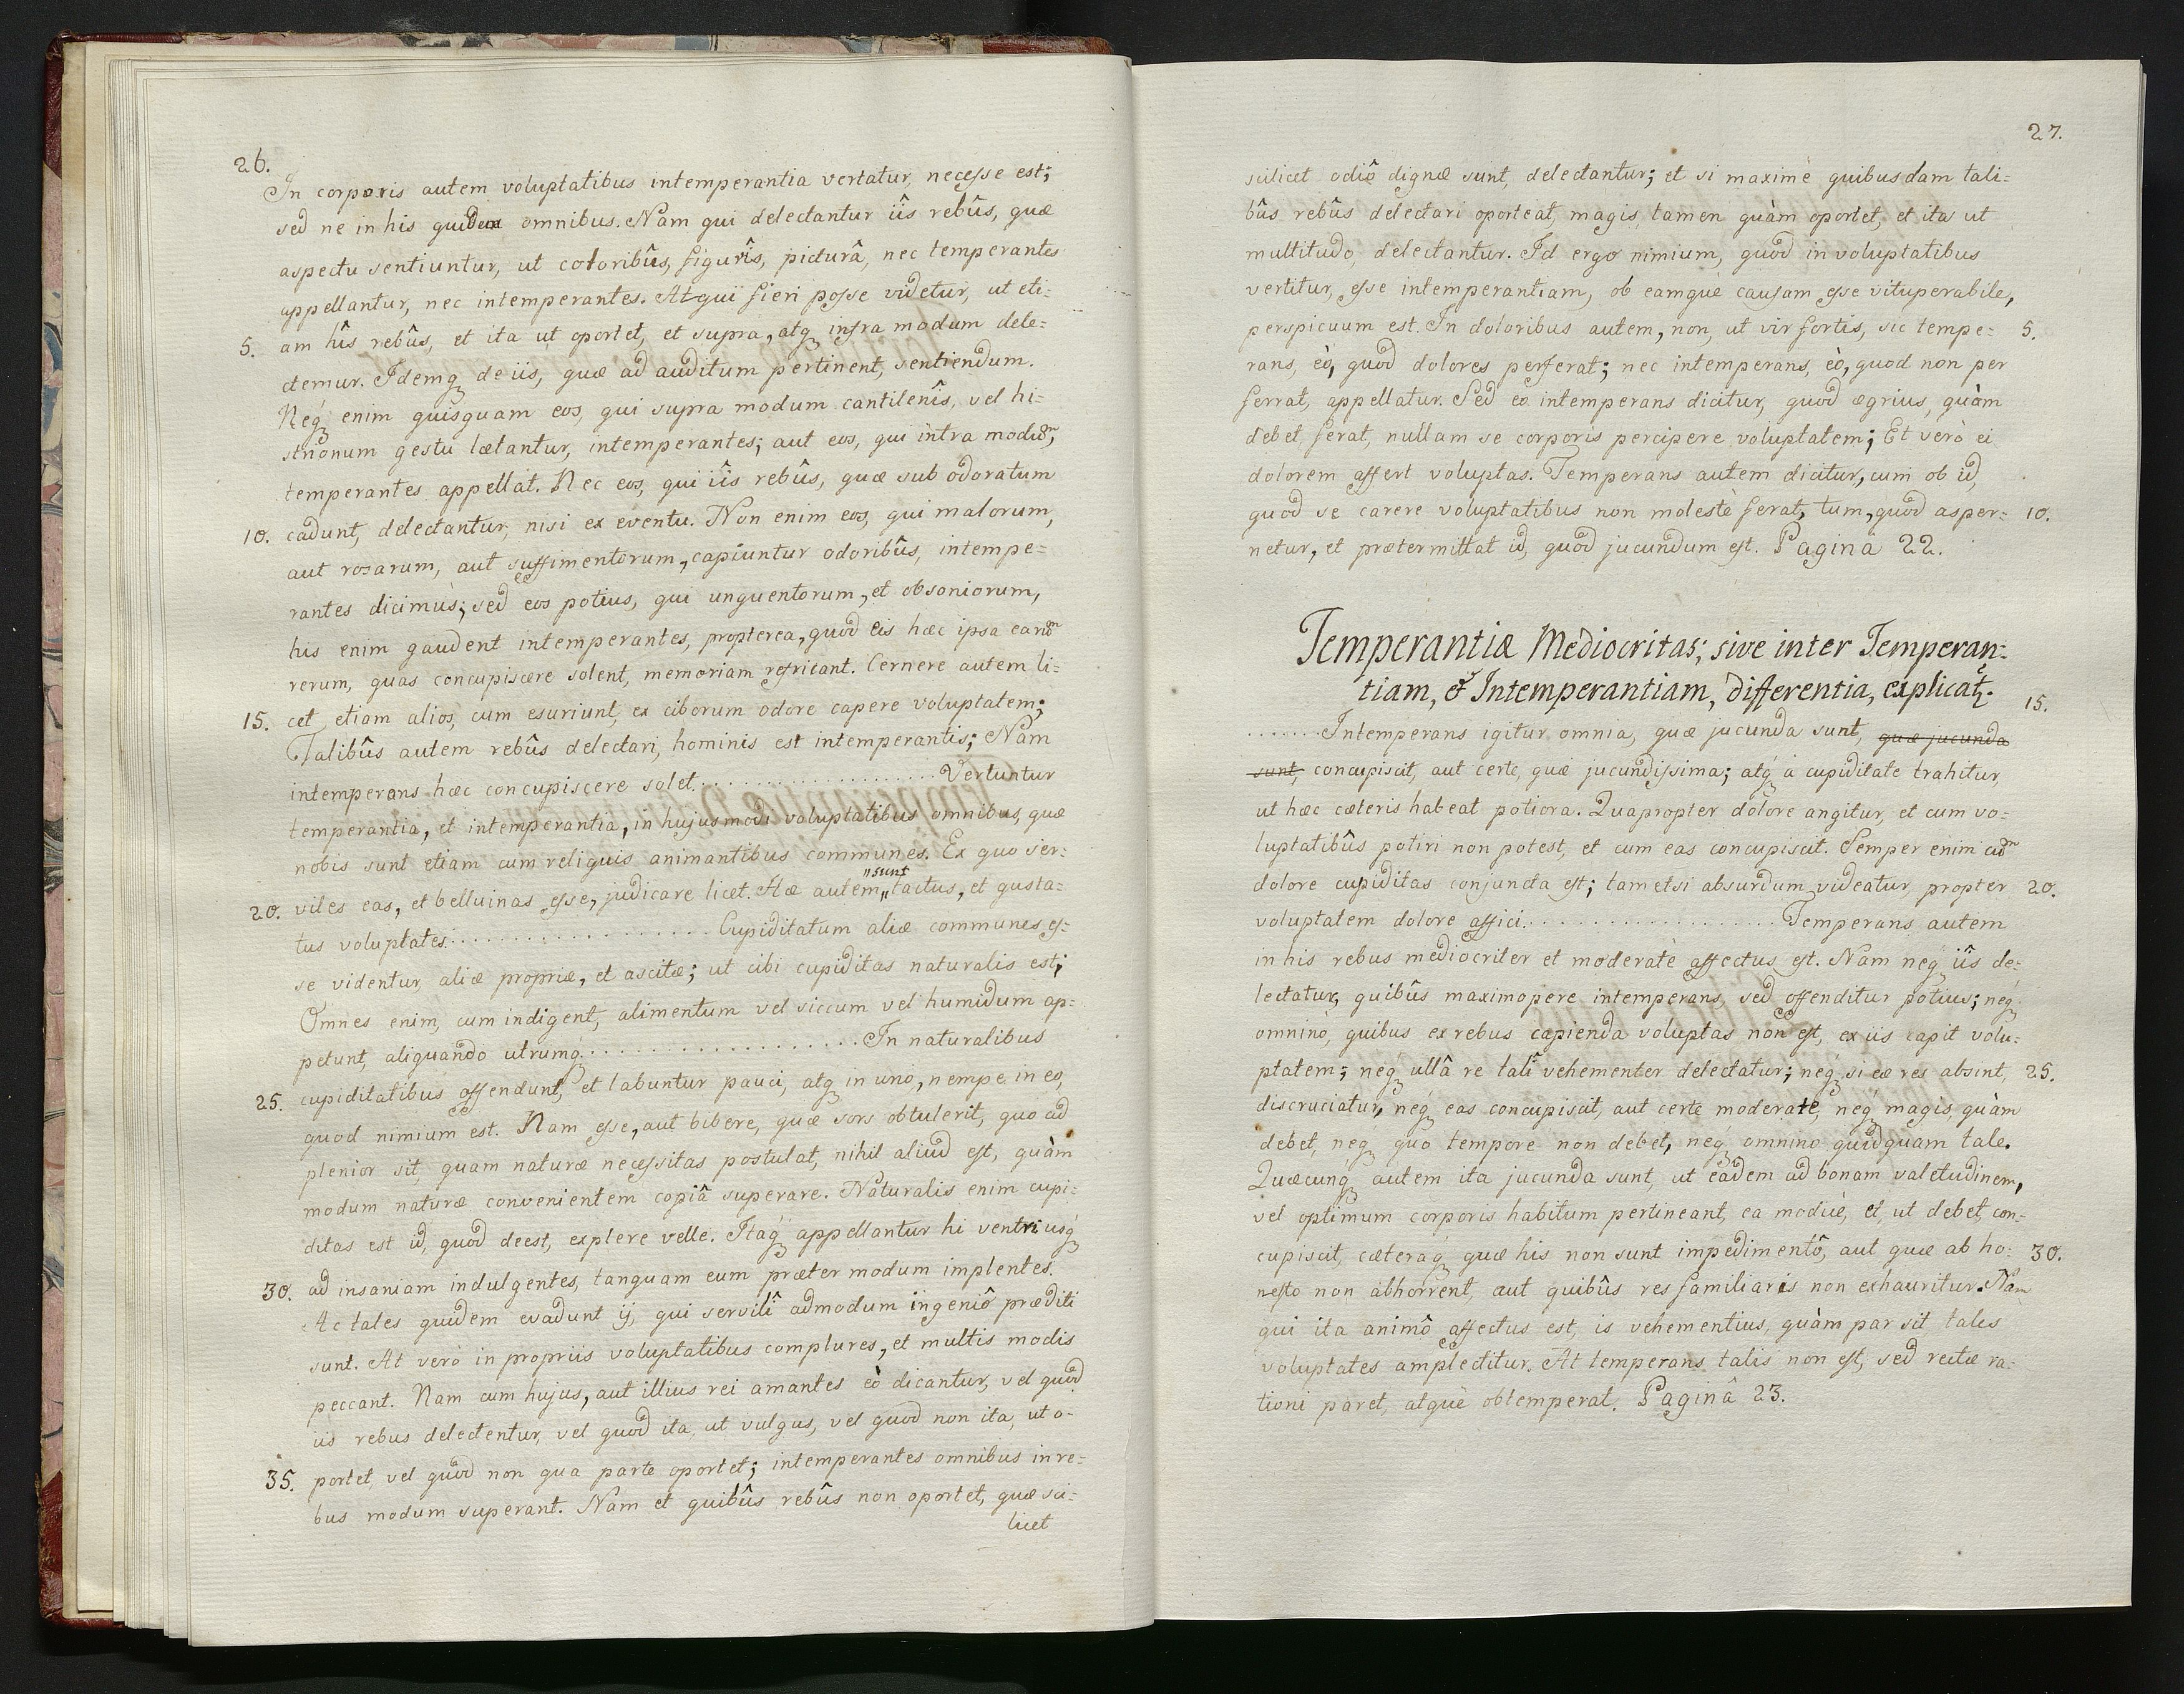 26.
In corporis autem voluptatibus intemperantia vertatur, necesse est;
sed ne in his quidem omnibus. Nam qui delectantur iîs rebûs, quæ
aspectu sentiuntur, ut coloribûs, figurîs, picturâ, nec temperantes
appellantur, nec intemperantes. Atqui fieri posse videtur, ut eti=
5. am hîs rebûs, et ita ut oportet, et supra, atq́ infra modum dele=
ctemur. Idemq́ de iis, quæ ad auditum pertinent, sentiendum.
Neq́ enim quisquam eos, qui supra modum cantilenîs, vel hi=
strionum gestu lætantur, intemperantes; aut eos, qui intra modũ,
temperantes appellat. Nec eos, qui iîs rebûs, quæ sub odoratum
10. cadunt, delectantur, nisi ex eventu. Non enim eos, qui malorum,
aut rosarum, aut suffimentorum, capiuntur odoribûs, intempe=
rantes dicimùs; sed eos potius, qui unguentorum, et obsoniorum,
his enim gaudent intemperantes, propterea, quòd eis hæc ipsa earũ
rerum, quas concupiscere solent, memoriam refricant. Cernere autem li=
15. cet etiam alios, cum esuriunt, ex ciborum odore capere voluptatem;
Talibûs autem rebûs delectari, hominis est intemperantis; Nam
intemperans hæc concupiscere solet. . . . . . . . . . . . . . . . . . . Vertuntur
temperantia, et intemperantia, in hujusmodi voluptatibus omnibus, quæ
nobis sunt etiam cum reliquis animantibus communes. Ex quo ser=
20. viles eas, et belluinas esse, judicare licet. Hæ autem "sunt" tactus, et gusta=
tus voluptates. . . . . . . . . . . . . . . . . . . . Cupiditatum aliæ communes es=
se videntur, aliæ propriæ, et ascitæ; ut cibi cupiditas naturalis est;
Omnes enim, cum indigent, alimentum vel siccum vel humidum ap=
petunt, aliquando utrumq́. . . . . . . . . . . . . . . . . . . . . In naturalibus
25. cupiditatibus offendunt, et labuntur pauci, atq́ in uno, nempe in eo,
quod nimium est. Nam esse, aut bibere, quæ sors obtulerit, quo ad
plenior sit, quam naturæ necessitas postulat, nihil aliud est, quàm
modum naturæ convenientem copiâ superare. Naturalis enim cupi=
ditas est id, quod deest, explere velle. Itaq́ appellantur hi ventriusq́
30. ad insaniam indulgentes, tanquam eum præter modum implentes.
Ac tales quidem evadunt ij, qui servilî admodum ingeniô præditi
sunt. At verò in propriis voluptatibus complures, et multis modis
peccant. Nam cum hujus, aut illius rei amantes eò dicantur, vel quòd
iis rebus delectentur, vel quòd ita, ut vulgus, vel quod non ita, ut o=
35. portet, vel quòd non qua parte oportet; intemperantes omnibus in re=
bus modum superant. Nam et quibûs rebûs non oportet, quæ sci=
licet
27.
scilicet odiô dignæ sunt, delectantur; et si maximè quibusdam tali=
bûs rebûs delectari oporteat, magis, tamen quàm oportet, et ita ut
multitudo, delectantur. Id ergo nimium, quòd in voluptatibus
vertitur, esse intemperantiam, ob eamquè causam esse vituperabile,
perspicuum est. In doloribus autem, non, ut vir fortis, sic tempe= 5.
rans, eò, quòd dolores perferat; nec intemperans, eò, quod non per
ferrat, appellatur. Sed eo intemperans dicitur, quòd ægrius, quàm
debet, ferat, nullam se corporis percipere voluptatem; Et verò ei
dolorem affert voluptas. Temperans autem dicitur, cum ob id,
quòd se carere voluptatibus non molestè ferat, tum, quòd asper= 10.
netur, et prætermittat id, quod jucundum est. Paginâ 22.
Temperantiæ Mediocritas; sive inter Temperan=
tiam, & Intemperantiam, differentia, explicat̃. 15.
. . . . . . Intemperans igitur omnia, quæ jucunda sunt, quæ jucunda
sunt, concupiscit, aut certe, quæ jucundissima; atq́ à cupiditate trahitur,
ut hæc cæteris habeat potiora. Quapropter dolore angitur, et cum vo=
luptatibûs potiri non potest, et cum eas concupiscit. Semper enim cũ
dolore cupiditas conjuncta est; tametsi absurdum videatur, propter 20.
voluptatem dolore affici. . . . . . . . . . . . . . . . . . . . Temperans autem
in his rebus mediocriter et moderatè affectus est. Nam neq́ iîs de=
lectatur, quibûs maximopere intemperans, sed offenditur potius; neq́
omnino, quibus ex rebus capienda voluptas non est, ex iis capit volu=
ptatem; neq́ ullâ re talî vehementer delectatur; neq́ si eæ res absint, 25.
discruciatur, neq́ eas concupiscit, aut certe moderate, neq́ magis, quàm
debet, neq́ quo tempore non debet, neq́ omnino quidquam tale.
Quæcunq́ autem ita jucunda sunt, ut eadem ad bonam valetudinem,
vel optimum corporis habitum pertineant, ea modicè, et, ut debet, con=
cupiscit, cæteraq́ quæ his non sunt impedimentô, aut quæ ab ho= 30.
nesto non abhorrent, aut quibûs res familiaris non exhauritur. Nam
qui ita animô affectus est, is vehementius, quàm par sit tales
voluptates amplectitur. At temperans talis non est, sed rectæ ra=
tioni paret, atquè obtemperat. Paginâ 23.